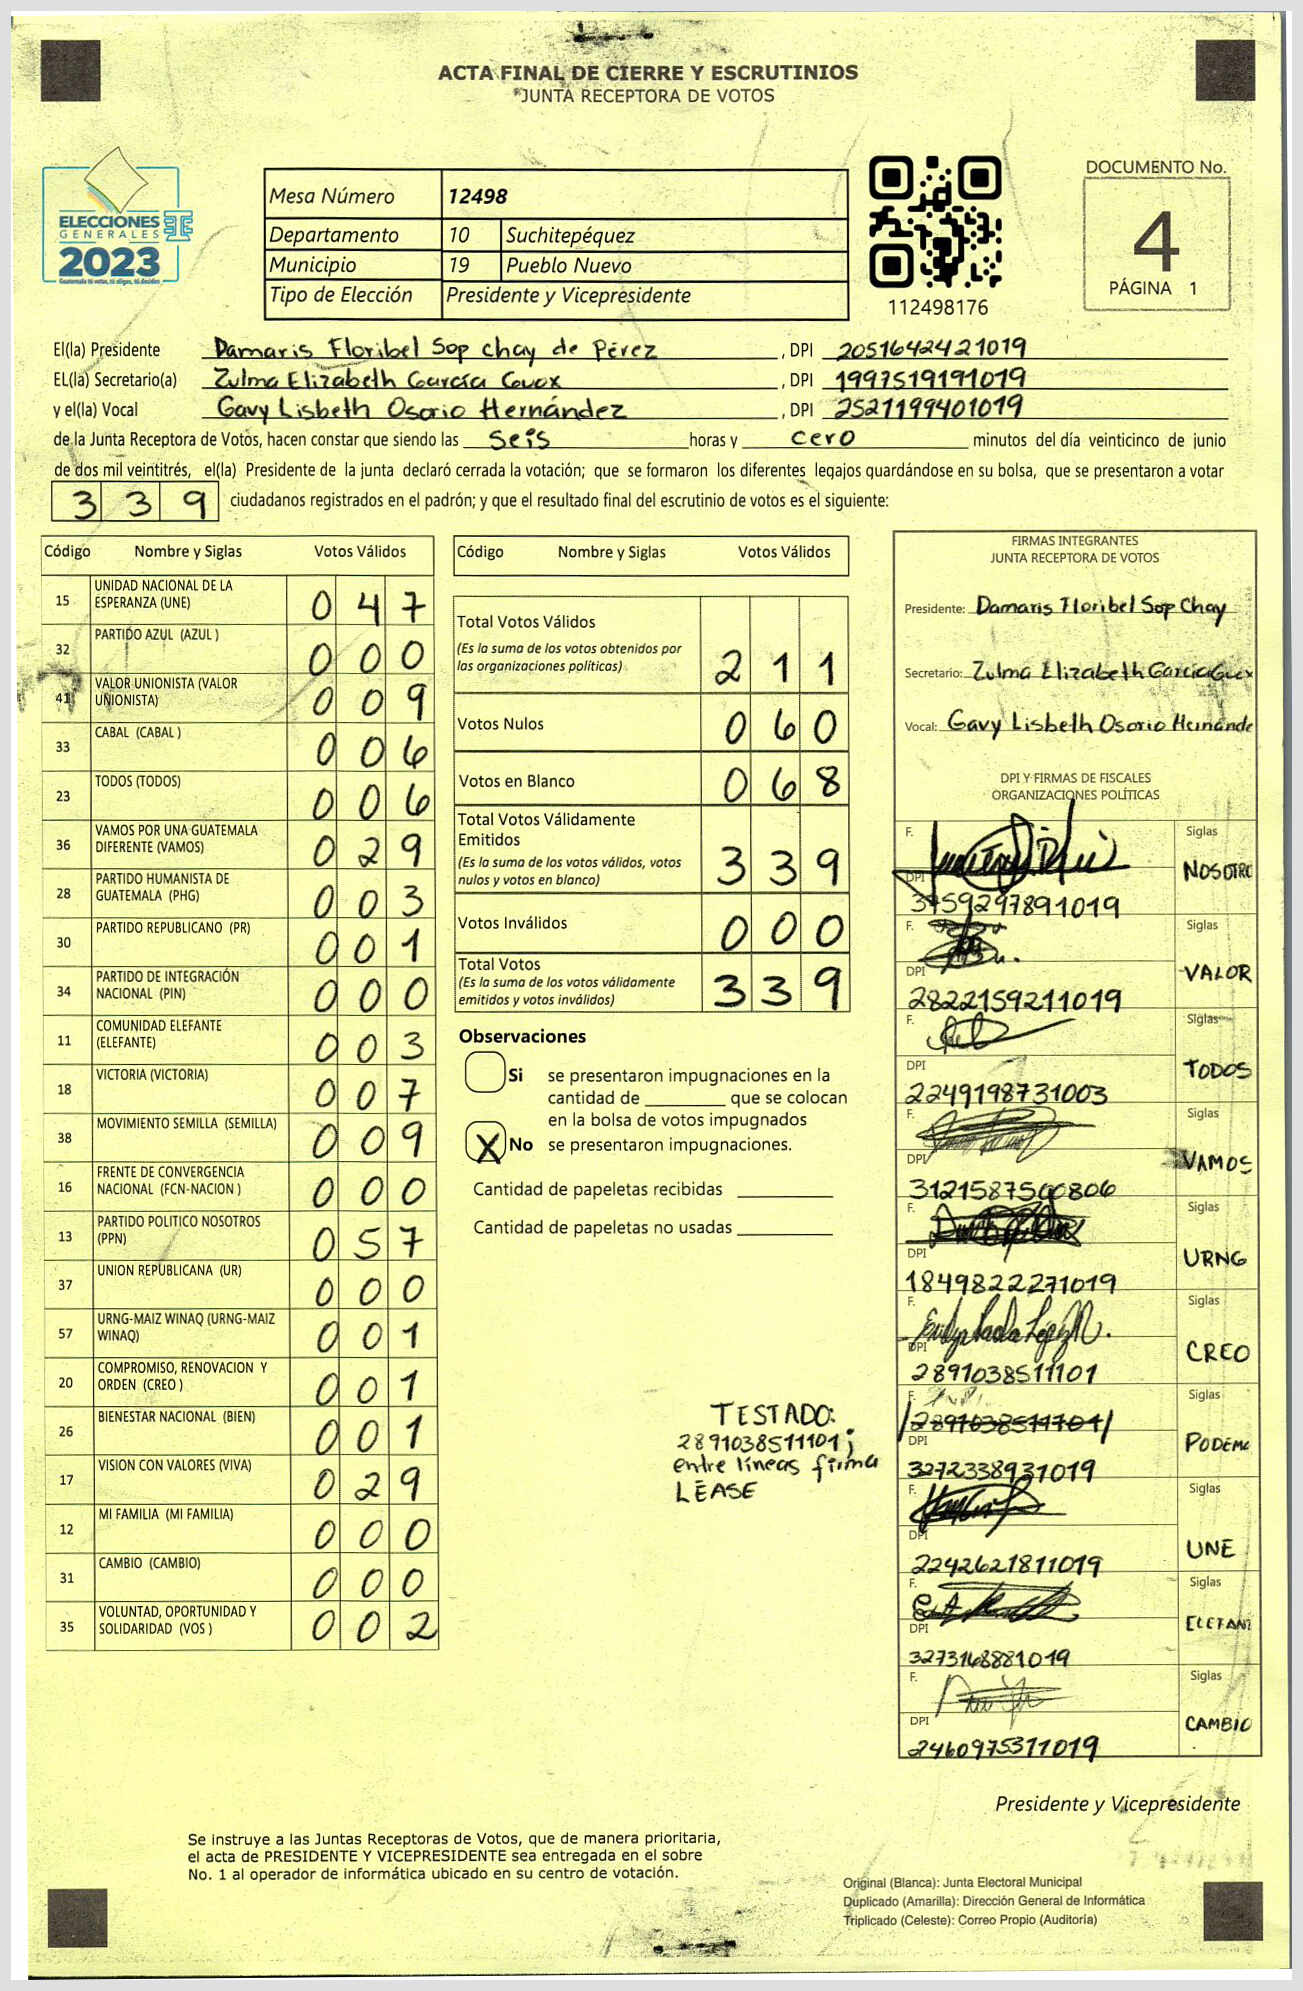 ACTA FINAL DE CIERRE Y ESCRUTINIOS
JUNTA RECEPTORA DE VOTOS
ELECCIONES
GENERALES
2023
Guatemala tú votas, tú eliges, tú decides
Mesa Número 12498
Departamento 10 Suchitepéquez
Municipio 19 Pueblo Nuevo
Tipo de Elección Presidente y Vicepresidente
112498176
DOCUMENTO No.
4
PÁGINA 1
El(la) Presidente Damaris Floribel Sop Chay de Pérez , DPI 2051642421019
EL(la) Secretario(a) Zulma Elizabeth García Cuox , DPI 1997519191019
y el(la) Vocal Gavy Lisbeth Osorio Hernández , DPI 2521199401019
de la Junta Receptora de Votos, hacen constar que siendo las seis horas y cero minutos del día veinticinco de junio
de dos mil veintitrés, el(la) Presidente de la junta declaró cerrada la votación; que se formaron los diferentes legajos guardándose en su bolsa, que se presentaron a votar
339 ciudadanos registrados en el padrón; y que el resultado final del escrutinio de votos es el siguiente:
Código Nombre y Siglas Votos Válidos
15 UNIDAD NACIONAL DE LA ESPERANZA (UNE) 047
32 PARTIDO AZUL (AZUL ) 000
41 VALOR UNIONISTA (VALOR UNIONISTA) 009
33 CABAL (CABAL ) 006
23 TODOS (TODOS) 006
36 VAMOS POR UNA GUATEMALA DIFERENTE (VAMOS) 029
28 PARTIDO HUMANISTA DE GUATEMALA (PHG) 003
30 PARTIDO REPUBLICANO (PR) 001
34 PARTIDO DE INTEGRACIÓN NACIONAL (PIN) 000
11 COMUNIDAD ELEFANTE (ELEFANTE) 003
18 VICTORIA (VICTORIA) 007
38 MOVIMIENTO SEMILLA (SEMILLA) 009
16 FRENTE DE CONVERGENCIA NACIONAL (FCN-NACION ) 000
13 PARTIDO POLITICO NOSOTROS (PPN) 057
37 UNION REPUBLICANA (UR) 000
57 URNG-MAIZ WINAQ (URNG-MAIZ WINAQ) 001
20 COMPROMISO, RENOVACION Y ORDEN (CREO ) 001
26 BIENESTAR NACIONAL (BIEN) 001
17 VISION CON VALORES (VIVA) 029
12 MI FAMILIA (MI FAMILIA) 000
31 CAMBIO (CAMBIO) 000
35 VOLUNTAD, OPORTUNIDAD Y SOLIDARIDAD (VOS ) 002
Código Nombre y Siglas Votos Válidos
Total Votos Válidos
(Es la suma de los votos obtenidos por
las organizaciones políticas) 211
Votos Nulos 060
Votos en Blanco 068
Total Votos Válidamente
Emitidos
(Es la suma de los votos válidos, votos
nulos y votos en blanco) 339
Votos Inválidos 000
Total Votos
(Es la suma de los votos válidamente
emitidos y votos inválidos) 339
Observaciones
Si se presentaron impugnaciones en la
cantidad de ________ que se colocan
en la bolsa de votos impugnados
X No se presentaron impugnaciones.
Cantidad de papeletas recibidas
Cantidad de papeletas no usadas
TESTADO:
2891038511101;
entre líneas firma
LÉASE
FIRMAS INTEGRANTES
JUNTA RECEPTORA DE VOTOS
Presidente: Damaris Floribel Sop Chay
Secretario: Zulma Elizabeth García Cuox
Vocal: Gavy Lisbeth Osorio Hernánde
DPI Y FIRMAS DE FISCALES
ORGANIZACIONES POLÍTICAS
F. Siglas
NOSOTRO
DPI
3759297891019
F. Siglas
VALOR
DPI
2822159211019
F. Siglas
TODOS
DPI
2249198731003
F. Siglas
VAMOS
DPI
3121587500806
F. Siglas
URNG
DPI
1849822271019
F. Siglas
CREO
DPI
2891038511101
F. Siglas
2891038511101
PODEMO
DPI
3272338931019
F. Siglas
UNE
DPI
2242621811019
F. Siglas
ELEFANT
DPI
3273168881019
F. Siglas
CAMBIO
DPI
2460975311019
Presidente y Vicepresidente
Se instruye a las Juntas Receptoras de Votos, que de manera prioritaria,
el acta de PRESIDENTE Y VICEPRESIDENTE sea entregada en el sobre
No. 1 al operador de informática ubicado en su centro de votación.
Original (Blanca): Junta Electoral Municipal
Duplicado (Amarilla): Dirección General de Informática
Triplicado (Celeste): Correo Propio (Auditoría)